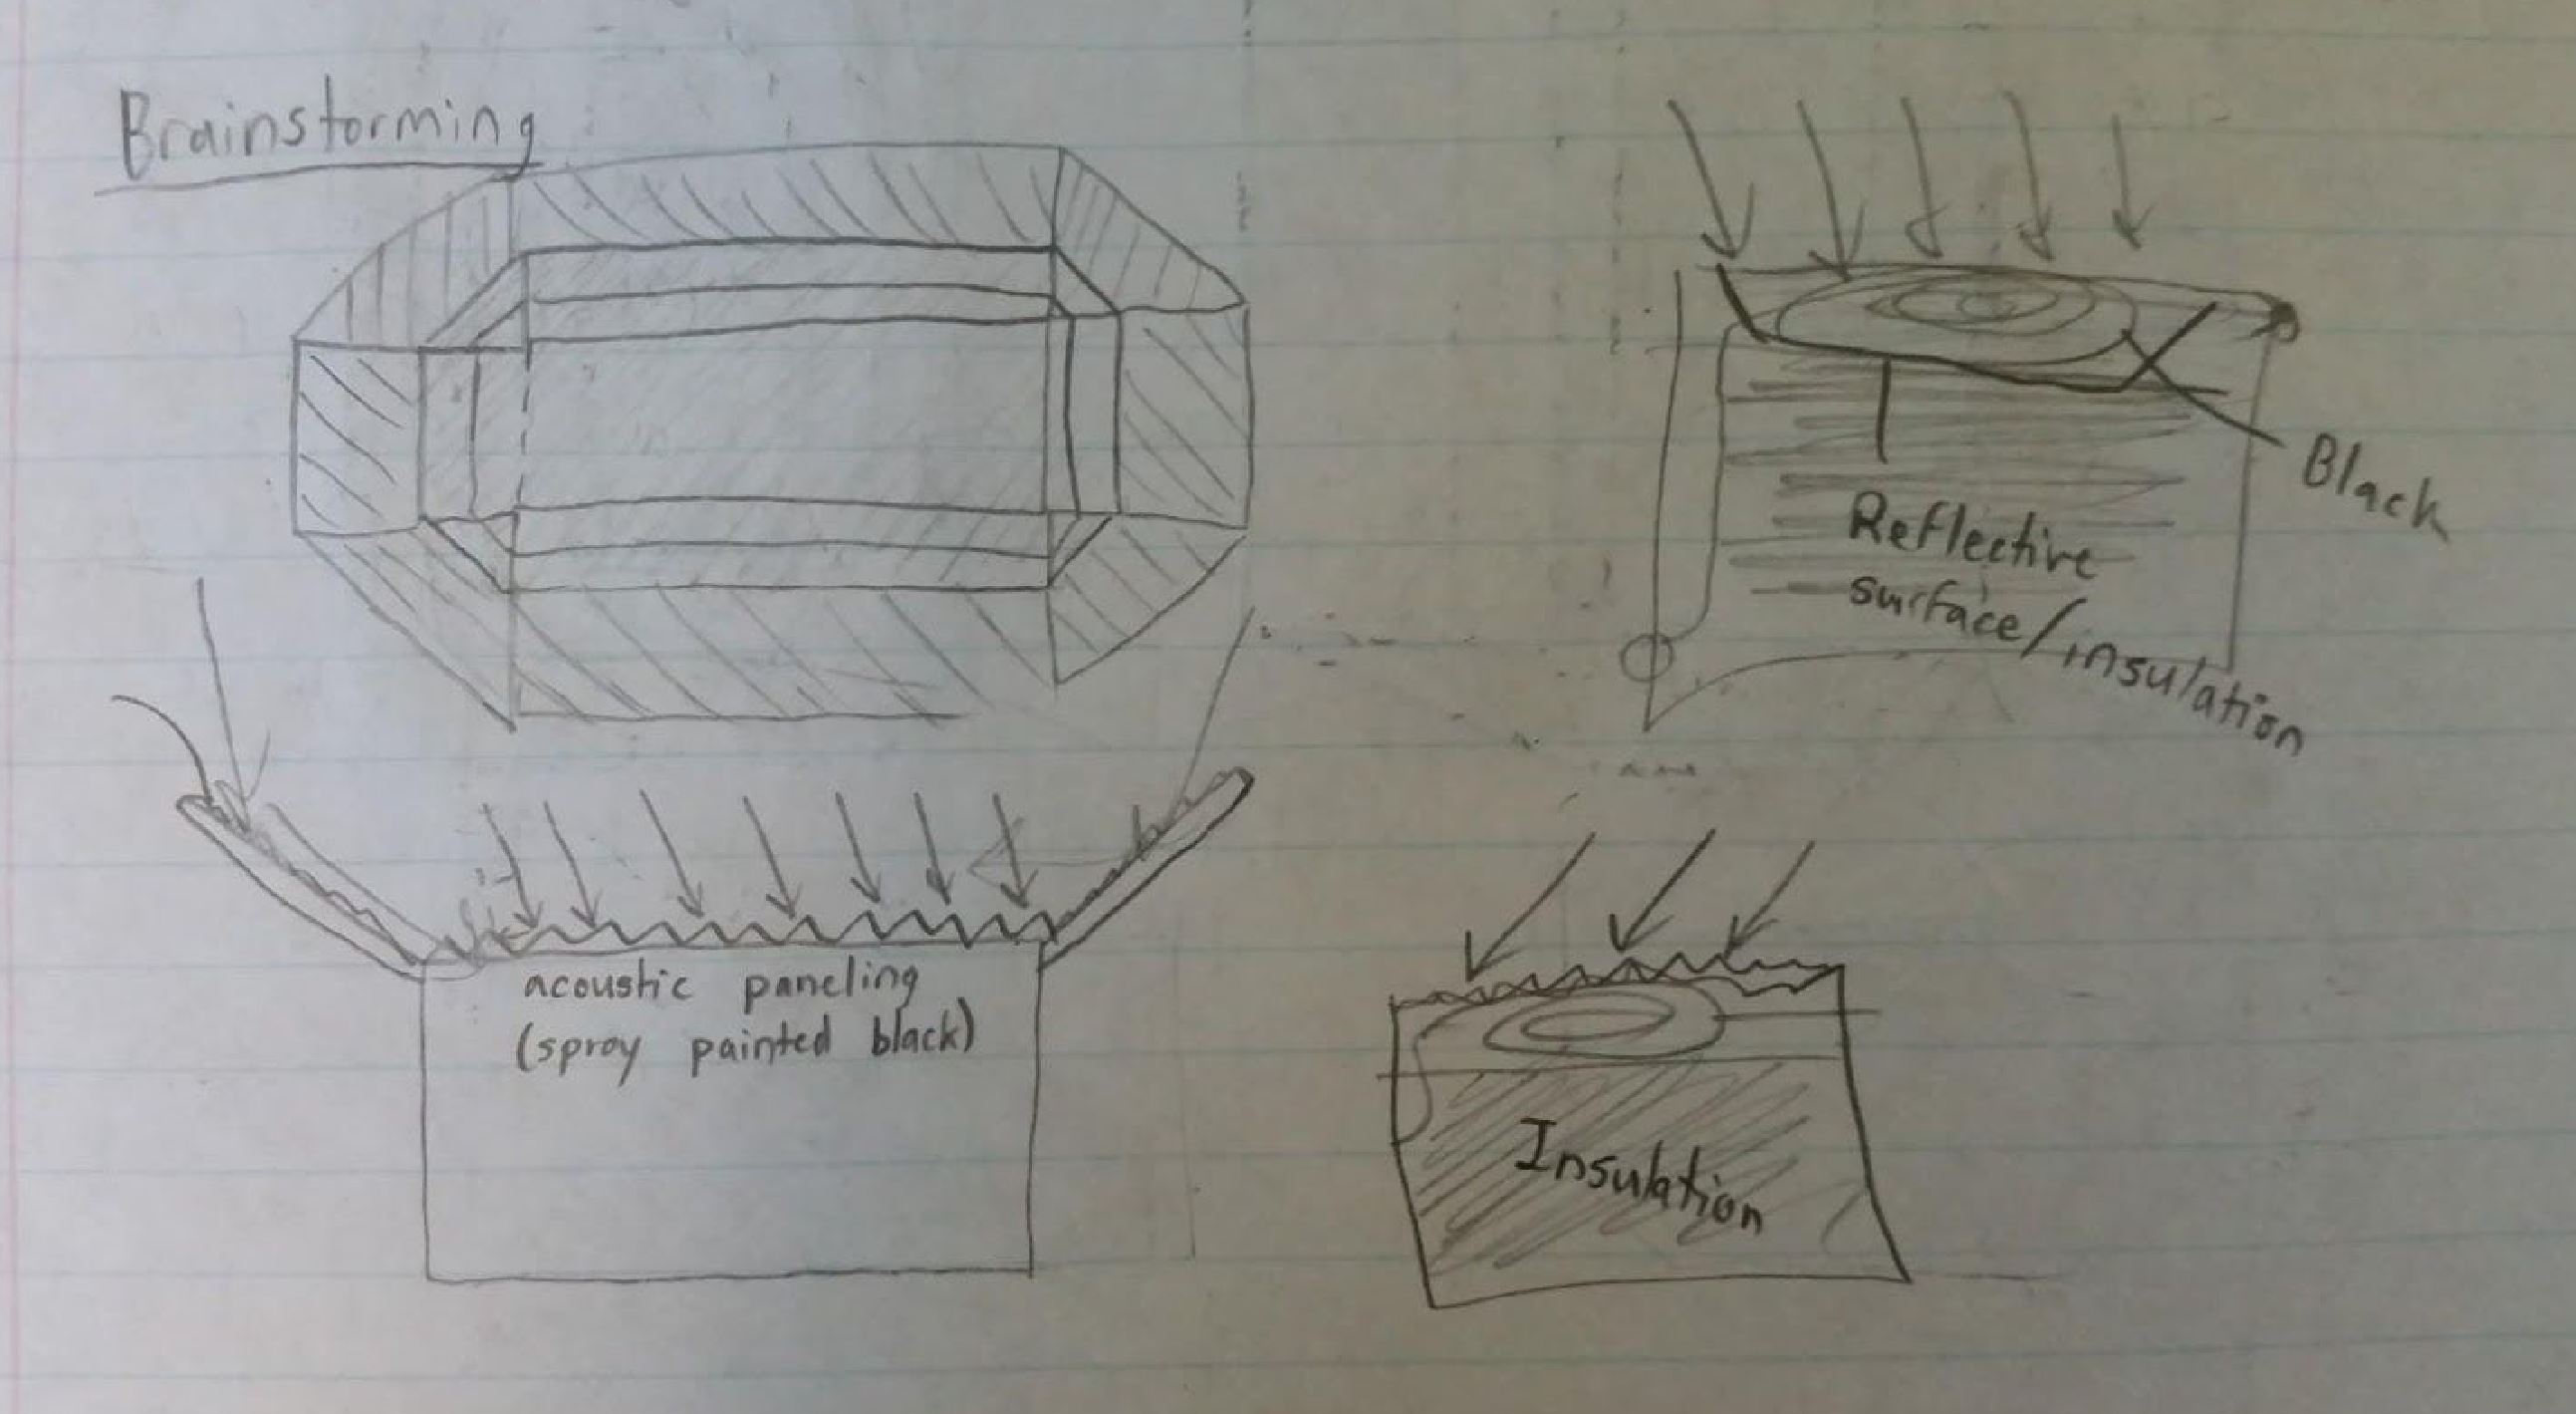 Brainstorming
Black
Reflective
surface/insulation
acoustic paneling
(spray painted black)
Insulation